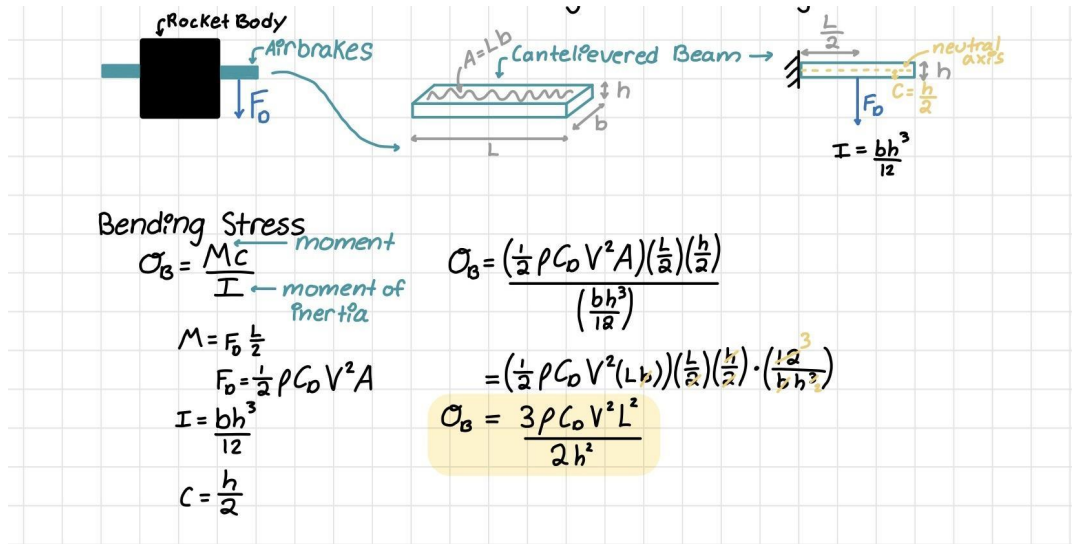 Rocket Body
Airbrakes
F_D
A=Lb
Cantelievered Beam →
h
b
L
L/2
neutral axis
h
C=h/2
F_D
I = bh³/12
Bending Stress
σ_B = Mc/I
moment
moment of inertia
M = F_D L/2
F_D = 1/2 ρC_D V²A
I = bh³/12
C = h/2
σ_B = (1/2 ρC_D V²A)(L/2)(h/2) / (bh³/12)
= (1/2 ρC_D V²(Lb))(L/2)(h/2)·(12/bh³) 3 2
σ_B = 3ρC_D V²L² / 2h²